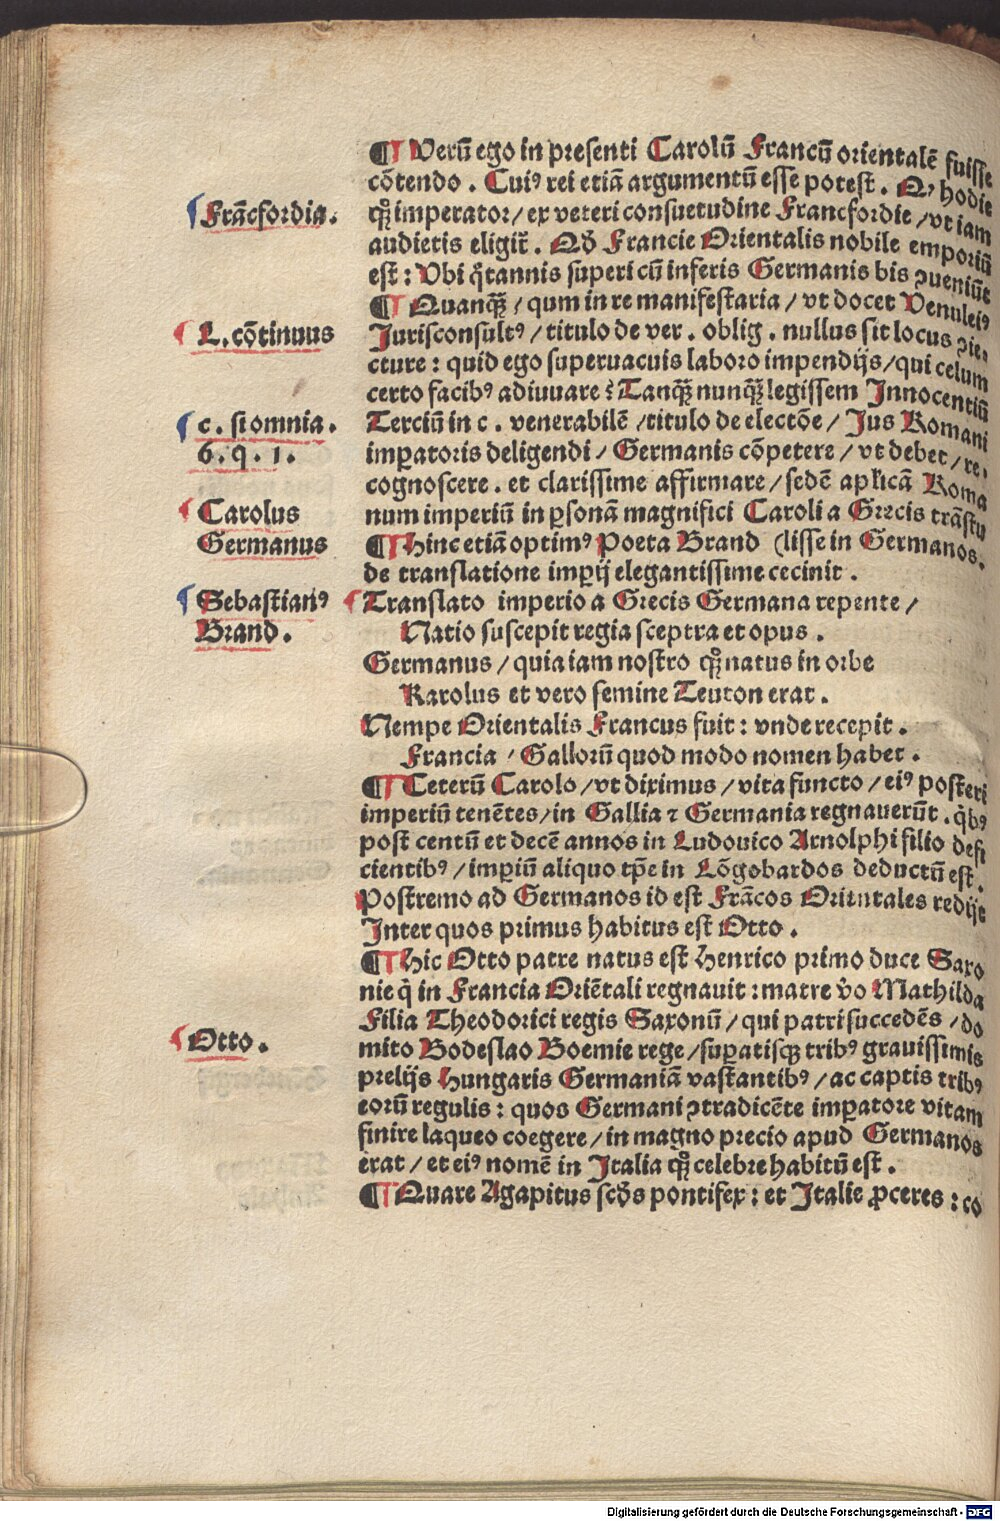 ¶ Verū ego in presenti Carolū Francū orientalē fuisse
cōtendo. Cuiꝰ rei etiā argumentū esse potest. Qꝫ hodie
Frācfordia.
qꝫ imperator/ ex veteri consuetudine Francfordie/ vt iam
audietis eligit̄. Qđ Francie Orientalis nobile emporiū
est: Vbi q̄tannis superi cū inferis Germanis bis ꝯueniūt
¶ Quanqꝫ/ qum in re manifestaria/ vt docet Venuleiꝰ
L. cōtinuus
Jurisconsultꝰ/ titulo de ver. oblig. nullus sit locus ꝯie-
cture: quid ego superuacuis laboro impendijs/ qui celum
certo facibꝰ adiuuare? Tanqꝫ nunqꝫ legissem Innocentiū
c. si omnia.
Terciū in c. venerabilē/ titulo de electōe/ Jus Romani
6. q. 1.
imꝑatoris deligendi/ Germanis cōpetere/ vt debet/ re-
cognoscere. et clarissime affirmare/ sedē apl̄icā Roma
Carolus
num imperiū in ꝑsonā magnifici Caroli a Grecis trāstu
Germanus
¶ Hinc etiā optimꝰ Poeta Brand (lisse in Germanos.
de translatione imꝑij elegantissime cecinit.
Sebastianꝰ
Translato imperio a Grecis Germana repente/
Brand.
Natio suscepit regia sceptra et opus.
Germanus/ quia iam nostro qꝫ natus in orbe
Karolus et vero semine Teuton erat.
Nempe Orientalis Francus fuit: vnde recepit.
Francia/ Gallorū quod modo nomen habet.
¶ Ceterū Carolo/ vt diximus/ vita functo/ eiꝰ posteri
imperiū tenētes/ in Gallia ⁊ Germania regnauerūt. q̄bꝰ
post centū et decē annos in Ludouico Arnolphi filio defi
cientibꝰ/ imꝑiū aliquo tp̄e in Lōgobardos deductū est.
Postremo ad Germanos id est Frācos Orientales redijt
Inter quos primus habitus est Otto.
¶ Hic Otto patre natus est Henrico primo duce Saxo
nie q̄ in Francia Oriētali regnauit: matre v̄o Mathilda
Filia Theodorici regis Saxonū/ qui patri succedēs/ do
Otto.
mito Bodeslao Boemie rege/ suꝑatisqꝫ tribꝰ grauissimis
prelijs Hungaris Germaniā vastantibꝰ/ ac captis tribꝰ
eorū regulis: quos Germani ꝯtradicēte imꝑatore vitam
finire laqueo coegere/ in magno precio apud Germanos
erat/ et eiꝰ nomē in Italia qꝫ celebre habitū est.
¶ Quare Agapitus scđs pontifex: et Italie ꝓceres: co
Digitalisierung gefördert durch die Deutsche Forschungsgemeinschaft - DFG